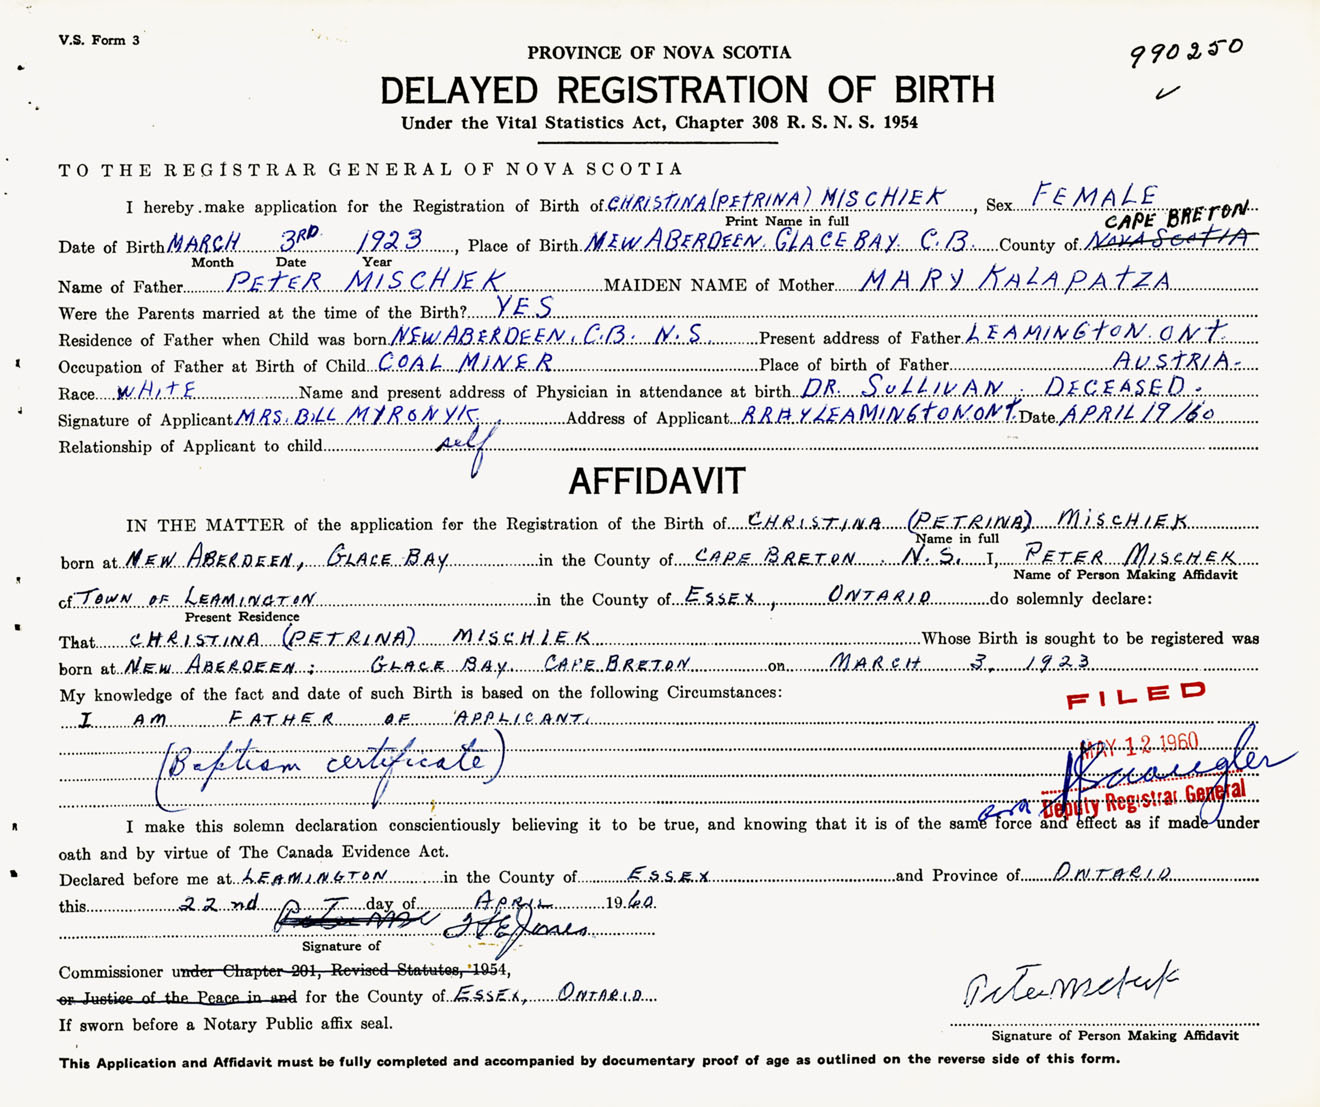 V.S. Form 3
PROVINCE OF NOVA SCOTIA
990250
DELAYED REGISTRATION OF BIRTH
Under the Vital Statistics Act, Chapter 308 R. S. N. S. 1954
TO THE REGISTRAR GENERAL OF NOVA SCOTIA
I hereby make application for the Registration of Birth of CHRISTINA (PETRINA) MISCHIEK, Sex FEMALE
Print Name in full
CAPE BRETON
Date of Birth MARCH 3RD 1923, Place of Birth NEW ABERDEEN. GLACE BAY C.B. County of NOVA SCOTIA
Month Date Year
Name of Father PETER MISCHIEK MAIDEN NAME of Mother MARY KALAPATZA
Were the Parents married at the time of the Birth? YES
Residence of Father when Child was born NEW ABERDEEN, C.B. N.S. Present address of Father LEAMINGTON. ONT.
Occupation of Father at Birth of Child COAL MINER Place of birth of Father AUSTRIA-
Race WHITE Name and present address of Physician in attendance at birth DR. SULLIVAN. DECEASED.
Signature of Applicant MRS. BILL MYRONYK Address of Applicant LEAMINGTON ONT. Date APRIL 19/60
Relationship of Applicant to child self
AFFIDAVIT
IN THE MATTER of the application for the Registration of the Birth of CHRISTINA (PETRINA) MISCHIEK
Name in full
born at NEW ABERDEEN, GLACE BAY in the County of CAPE BRETON. N.S. I, PETER MISCHEK
Name of Person Making Affidavit
of TOWN OF LEAMINGTON in the County of ESSEX, ONTARIO do solemnly declare:
Present Residence
That CHRISTINA (PETRINA) MISCHIEK Whose Birth is sought to be registered was
born at NEW ABERDEEN; GLACE BAY CAPE BRETON on MARCH 3, 1923
My knowledge of the fact and date of such Birth is based on the following Circumstances:
FILED
I AM FATHER OF APPLICANT.
MAY 12 1960
(Baptism certificate)
Deputy Registrar General
I make this solemn declaration conscientiously believing it to be true, and knowing that it is of the same force and effect as if made under
oath and by virtue of The Canada Evidence Act.
Declared before me at LEAMINGTON in the County of ESSEX and Province of ONTARIO
this 22nd day of APRIL 1960.
Jones
Signature of
Commissioner under Chapter 201, Revised Statutes, 1954,
or Justice of the Peace in and for the County of ESSEX, ONTARIO
Peter Mischek
If sworn before a Notary Public affix seal.
Signature of Person Making Affidavit
This Application and Affidavit must be fully completed and accompanied by documentary proof of age as outlined on the reverse side of this form.